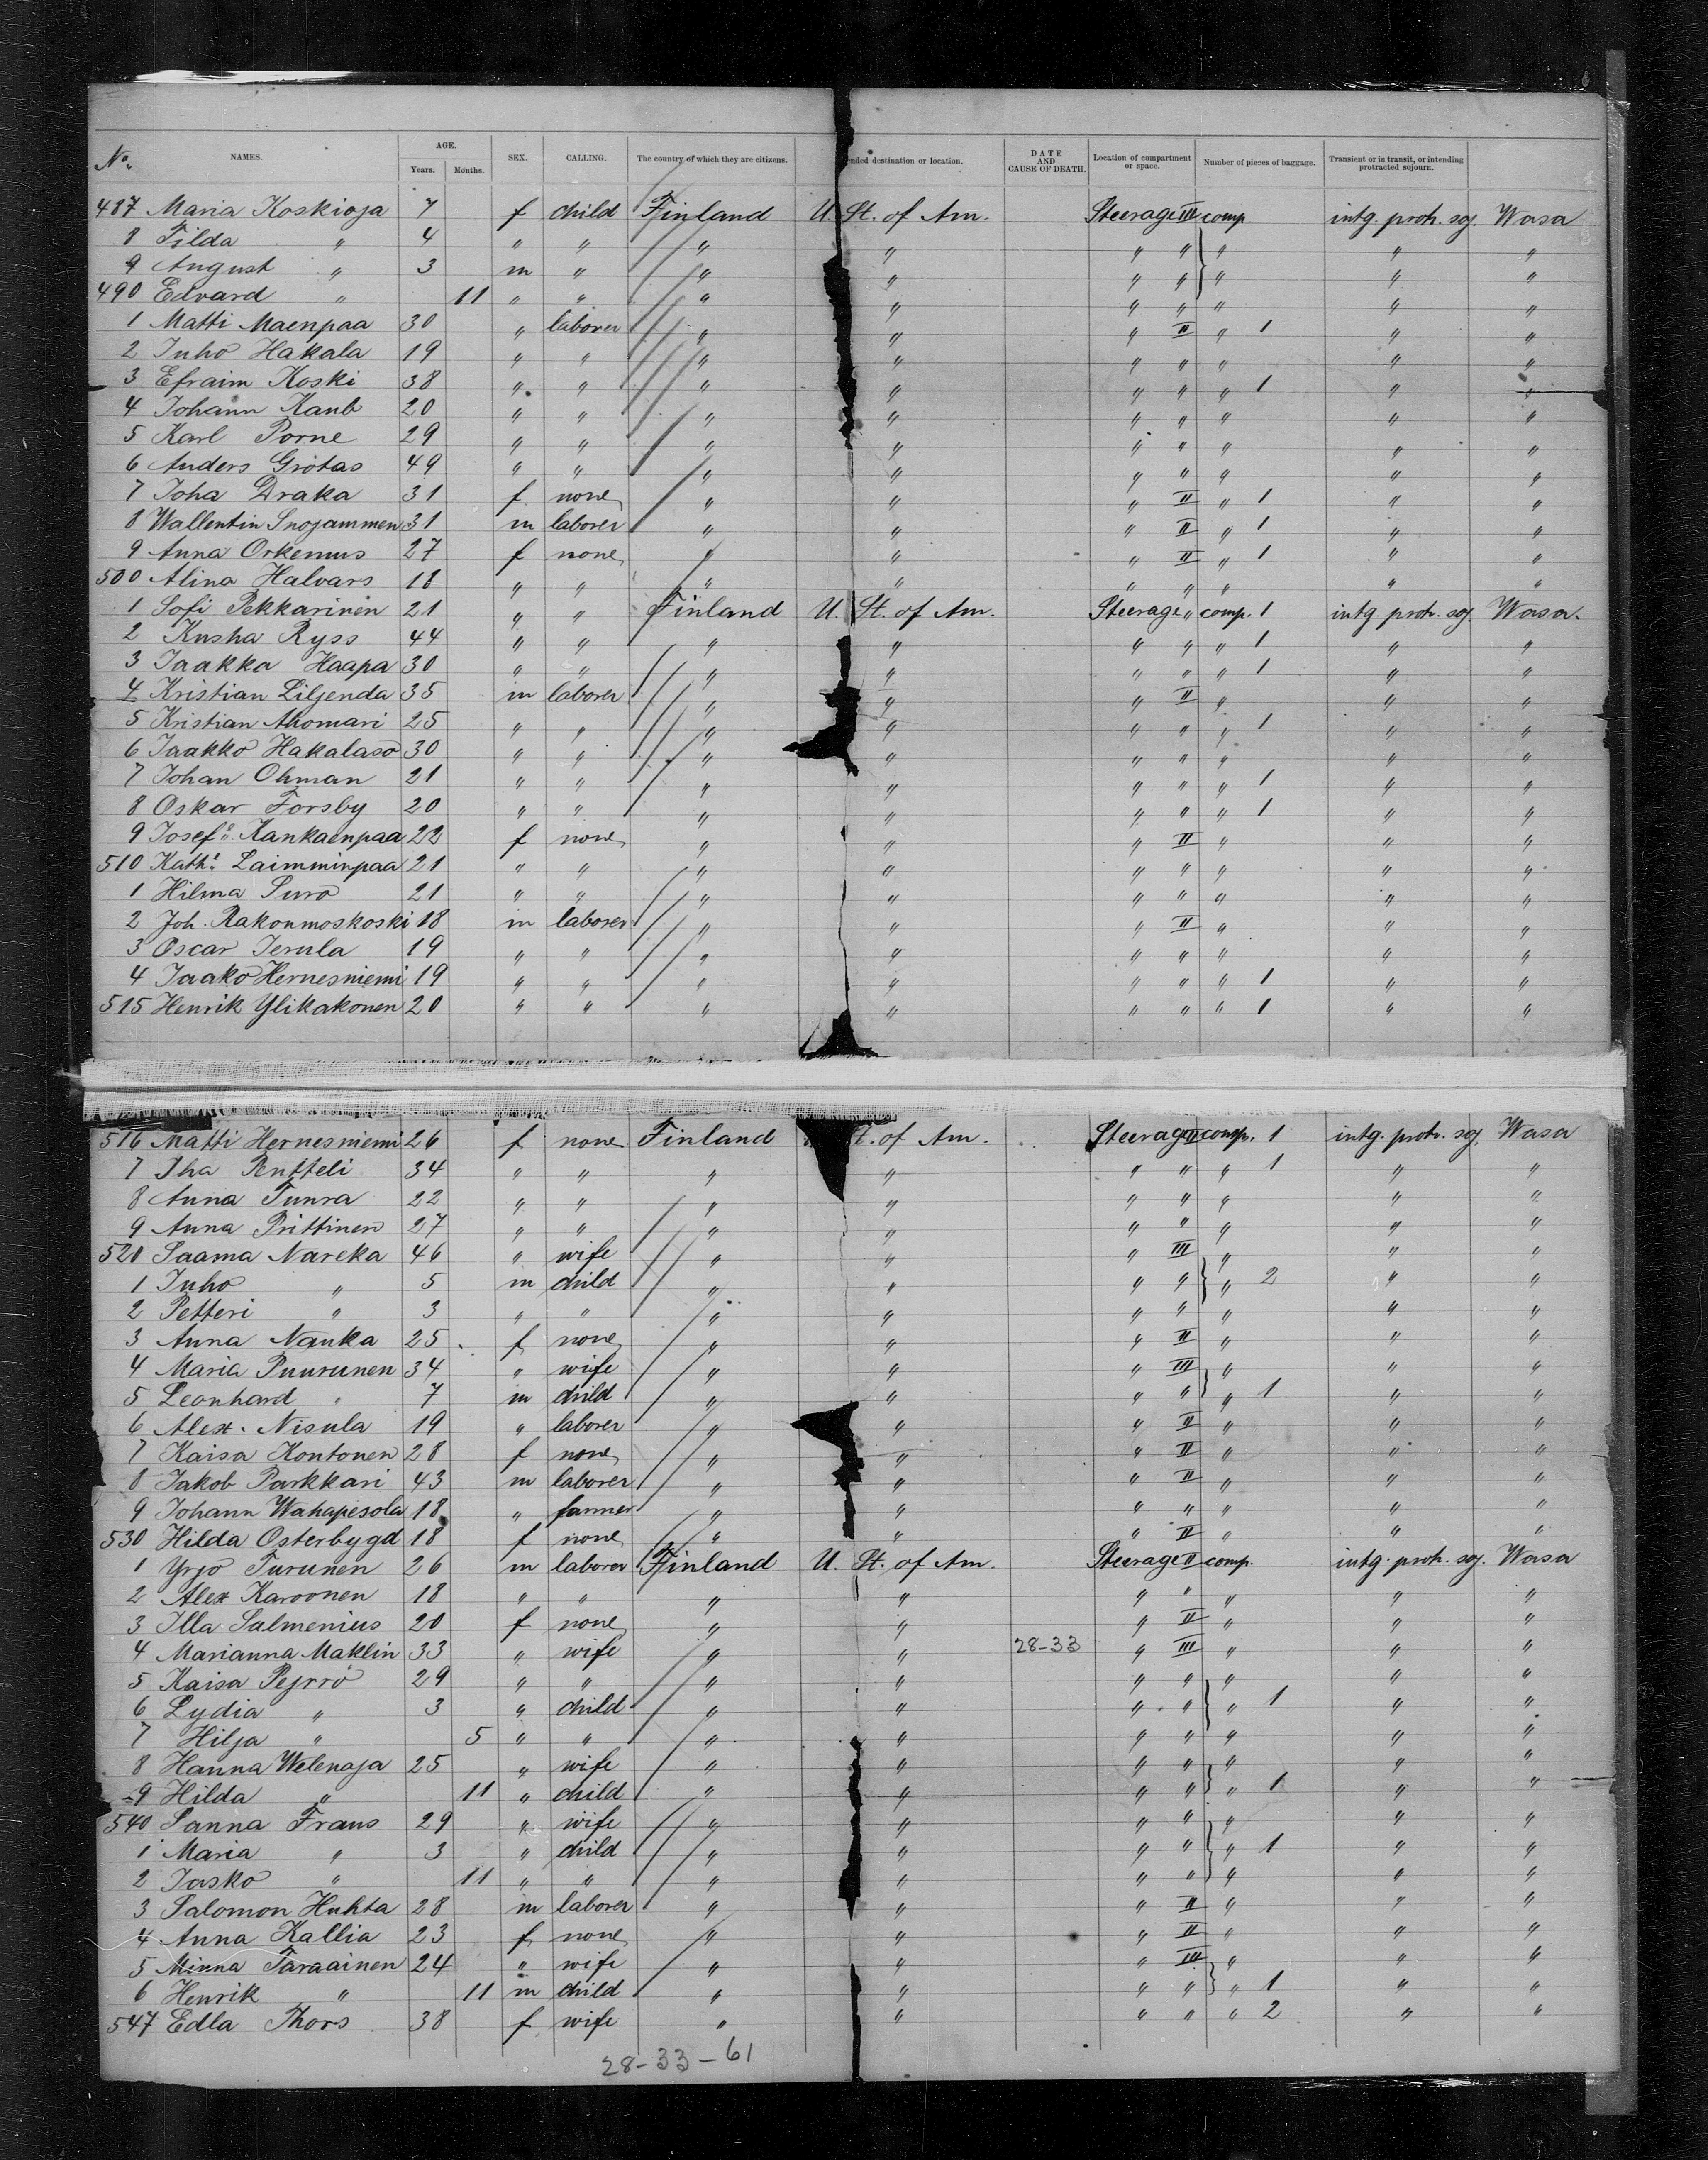 No. NAMES. AGE. Years. Months. SEX. CALLING. The country of which they are citizens. ended destination or location. DATE AND CAUSE OF DEATH. Location of compartment or space. Number of pieces of baggage. Transient or in transit, or intending protracted sojourn.
487 Maria Koskioja 7 f child Finland U. St. of Am. Steerage III comp. intg. protr. soj. Wasa
8 Tilda " 4 " " " " " " " " "
9 August " 3 m " " " " " " " "
490 Edvard " 11 " " " " " " " " "
1 Matti Maenpaa 30 " laborer " " " II " 1 " "
2 Juho Hakala 19 " " " " " " " " "
3 Efraim Koski 38 " " " " " " " 1 " "
4 Johann Kaub 20 " " " " " " " " "
5 Karl Porne 29 " " " " " " " " "
6 Anders Grötas 49 " " " " " " " " "
7 Joha Draka 31 f none " " " II " 1 " "
8 Wallentin Snojammen 31 m laborer " " " II " 1 " "
9 Anna Orkemus 27 f none " " " II " 1 " "
500 Alina Halvars 18 " " " " " " " " "
1 Sofi Pekkarinen 21 " " Finland U. St. of Am. Steerage " comp. 1 intg. protr. soj. Wasa.
2 Kusha Ryss 44 " " " " " " " 1 " "
3 Jaakka Haapa 30 " " " " " " " 1 " "
4 Kristian Liljenda 35 m laborer " " " II " " "
5 Kristian Ahomari 25 " " " " " " " 1 " "
6 Jaakko Hakalaso 30 " " " " " " " " "
7 Johan Ohman 21 " " " " " " " 1 " "
8 Oskar Forsby 20 " " " " " " " 1 " "
9 Josefa. Kankaenpaa 22 f none " " " II " " "
510 Katha. Laimminpaa 21 " " " " " " " " "
1 Hilma Suro 21 " " " " " " " " "
2 Joh. Rakonmoskoski 18 m laborer " " " II " " "
3 Oscar Jerula 19 " " " " " " " " "
4 Jaako Hernesniemi 19 " " " " " " " 1 " "
515 Henrik Ylikakonen 20 " " " " " " " 1 " "
516 Matti Hernesniemi 26 f none Finland St. of Am. Steerage II comp. 1 intg. protr. soj. Wasa
7 Iha Pentteli 34 " " " " " " " 1 " "
8 Anna Tunra 22 " " " " " " " " "
9 Anna Prittinen 27 " " " " " " " " "
520 Saama Nareka 46 " wife " " " III " " "
1 Juho " 5 m child " " " " " 2 " "
2 Petteri " 3 " " " " " " " " "
3 Anna Nauka 25 f none " " " II " " "
4 Maria Puurunen 34 " wife " " " III " " "
5 Leonhard " 7 m child " " " " " 1 " "
6 Alex. Nisula 19 " laborer " " " II " " "
7 Kaisa Kontonen 28 f none " " " II " " "
8 Jakob Parkkari 43 m laborer " " " II " " "
9 Johann Wahapesola 18 " farmer " " " " " " "
530 Hilda Osterbygd 18 f none " " " II " " "
1 Yrjo Turunen 26 m laborer Finland U. St. of Am. Steerage II comp. intg. protr. soj. Wasa
2 Alex Karoonen 18 " " " " " " " " "
3 Illa Salmenius 20 f none " " " II " " "
4 Marianna Maklin 33 " wife " " 28-33 " III " " "
5 Kaisa Pejrrö 29 " " " " " " " " "
6 Lydia " 3 " child " " " " " 1 " "
7 Hilja " 5 " " " " " " " " "
8 Hanna Welenaja 25 " wife " " " " " " "
9 Hilda " 11 " child " " " " " 1 " "
540 Sanna Frans 29 " wife " " " " " " "
1 Maria " 3 " child " " " " " 1 " "
2 Jasko " 11 " " " " " " " " "
3 Salomon Huhta 28 m laborer " " " II " " "
4 Anna Kallia 23 f none " " " II " " "
5 Minna Taraainen 24 " wife " " " III " " "
6 Henrik " 11 m child " " " " " 1 " "
547 Edla Thors 38 f wife " " " " " 2 " "
28-33-61